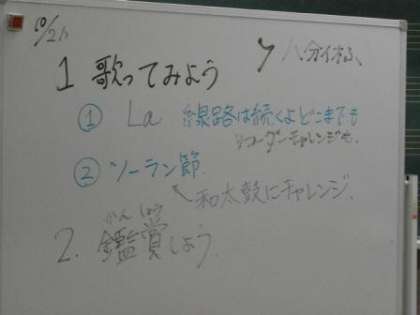 10/21
1 歌ってみよう
① La 線路は続くよどこまでも
リコーダーチャレンジも.
② ソーラン節
和太鼓にチャレンジ.
かん しょう
2. 鑑賞しよう.